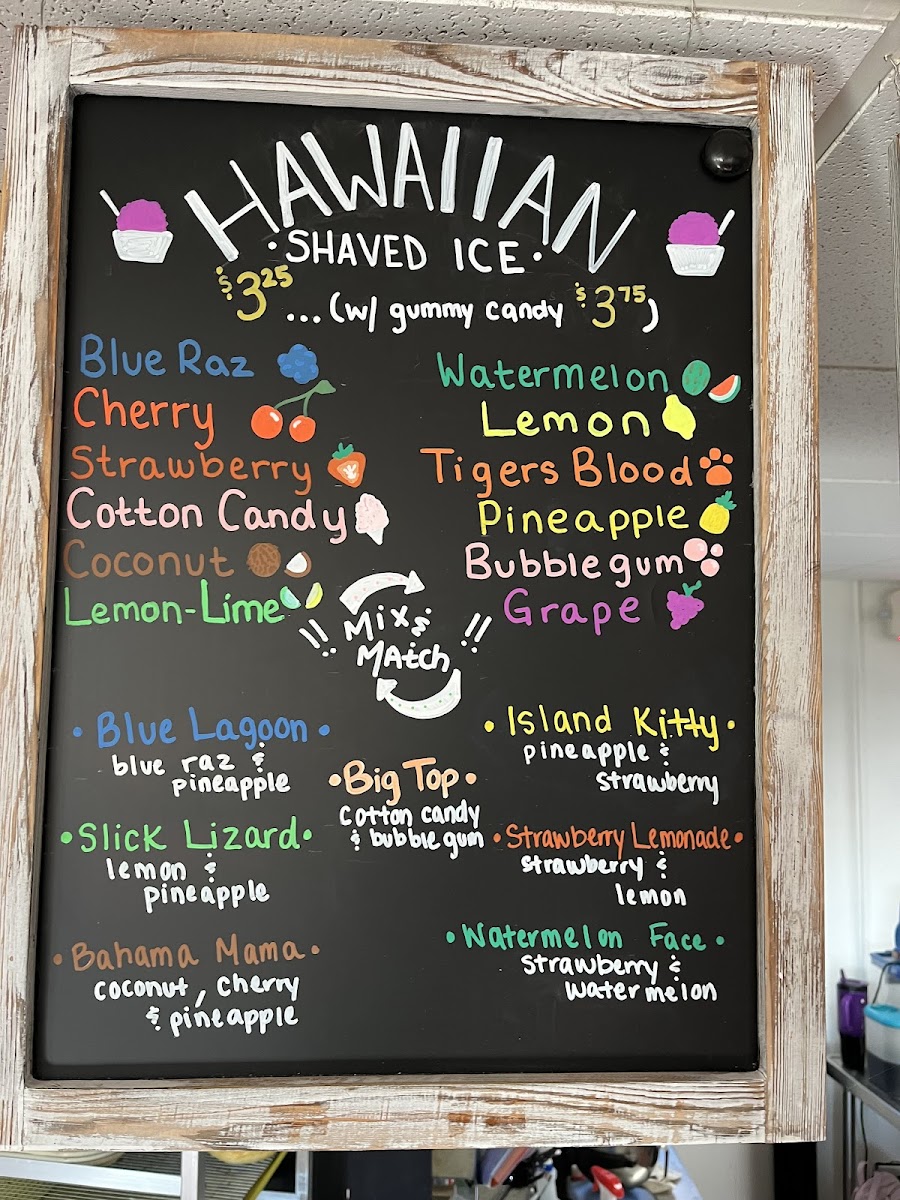 HAWAIIAN
• SHAVED ICE •
$3.25 ... (w/ gummy candy $3.75)
Blue Raz
Cherry
Strawberry
Cotton Candy
Coconut
Lemon-Lime
Watermelon
Lemon
Tigers Blood
Pineapple
Bubblegum
Grape
!! Mix & !!
MAtch
• Blue Lagoon •
blue raz &
pineapple
• Slick Lizard •
lemon &
pineapple
• Bahama Mama •
coconut, cherry
& pineapple
• Big Top •
cotton candy
& bubble gum
• Island Kitty •
pineapple &
strawberry
• Strawberry Lemonade •
strawberry &
lemon
• Watermelon Face •
strawberry &
watermelon